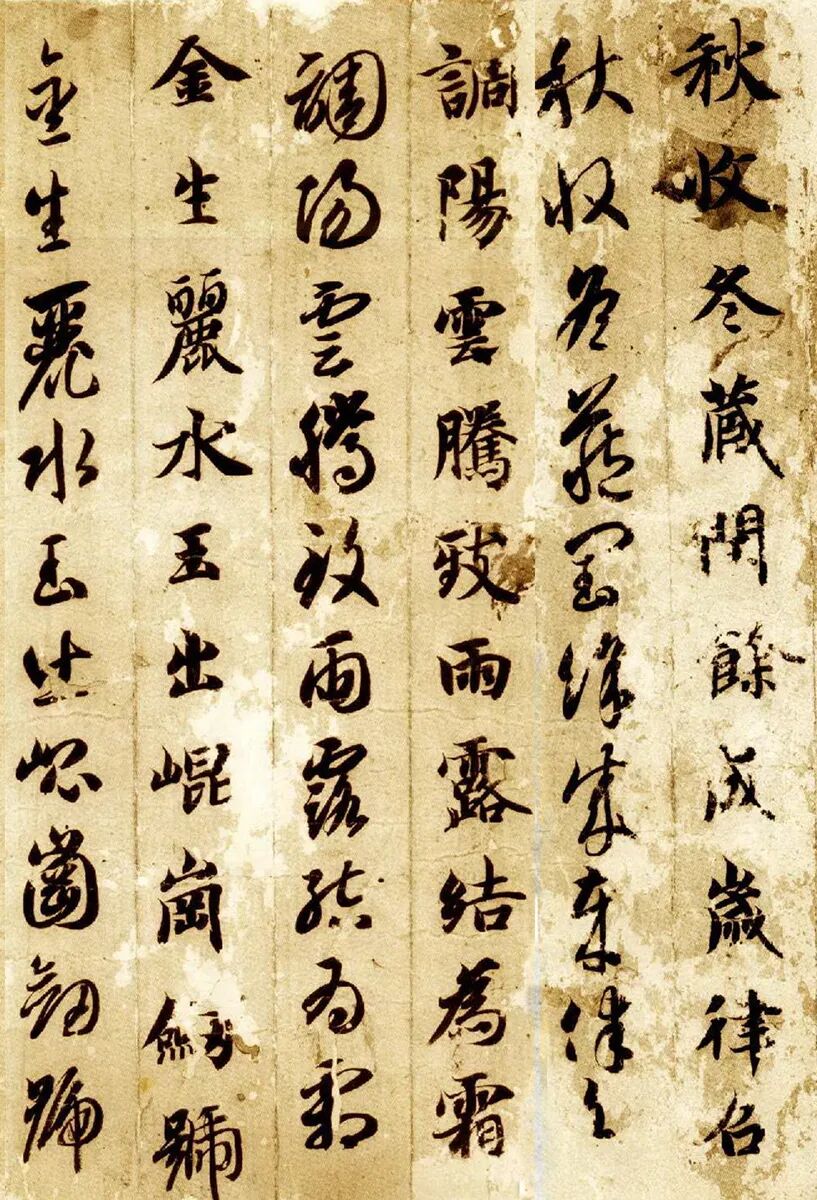 秋收冬藏閏餘成歲律召
秋收冬藏閏餘成歲律召
調陽雲騰致雨露結為霜
調陽雲騰致雨露結為霜
金生麗水玉出崐崗劍號
金生麗水玉出崐崗劍號